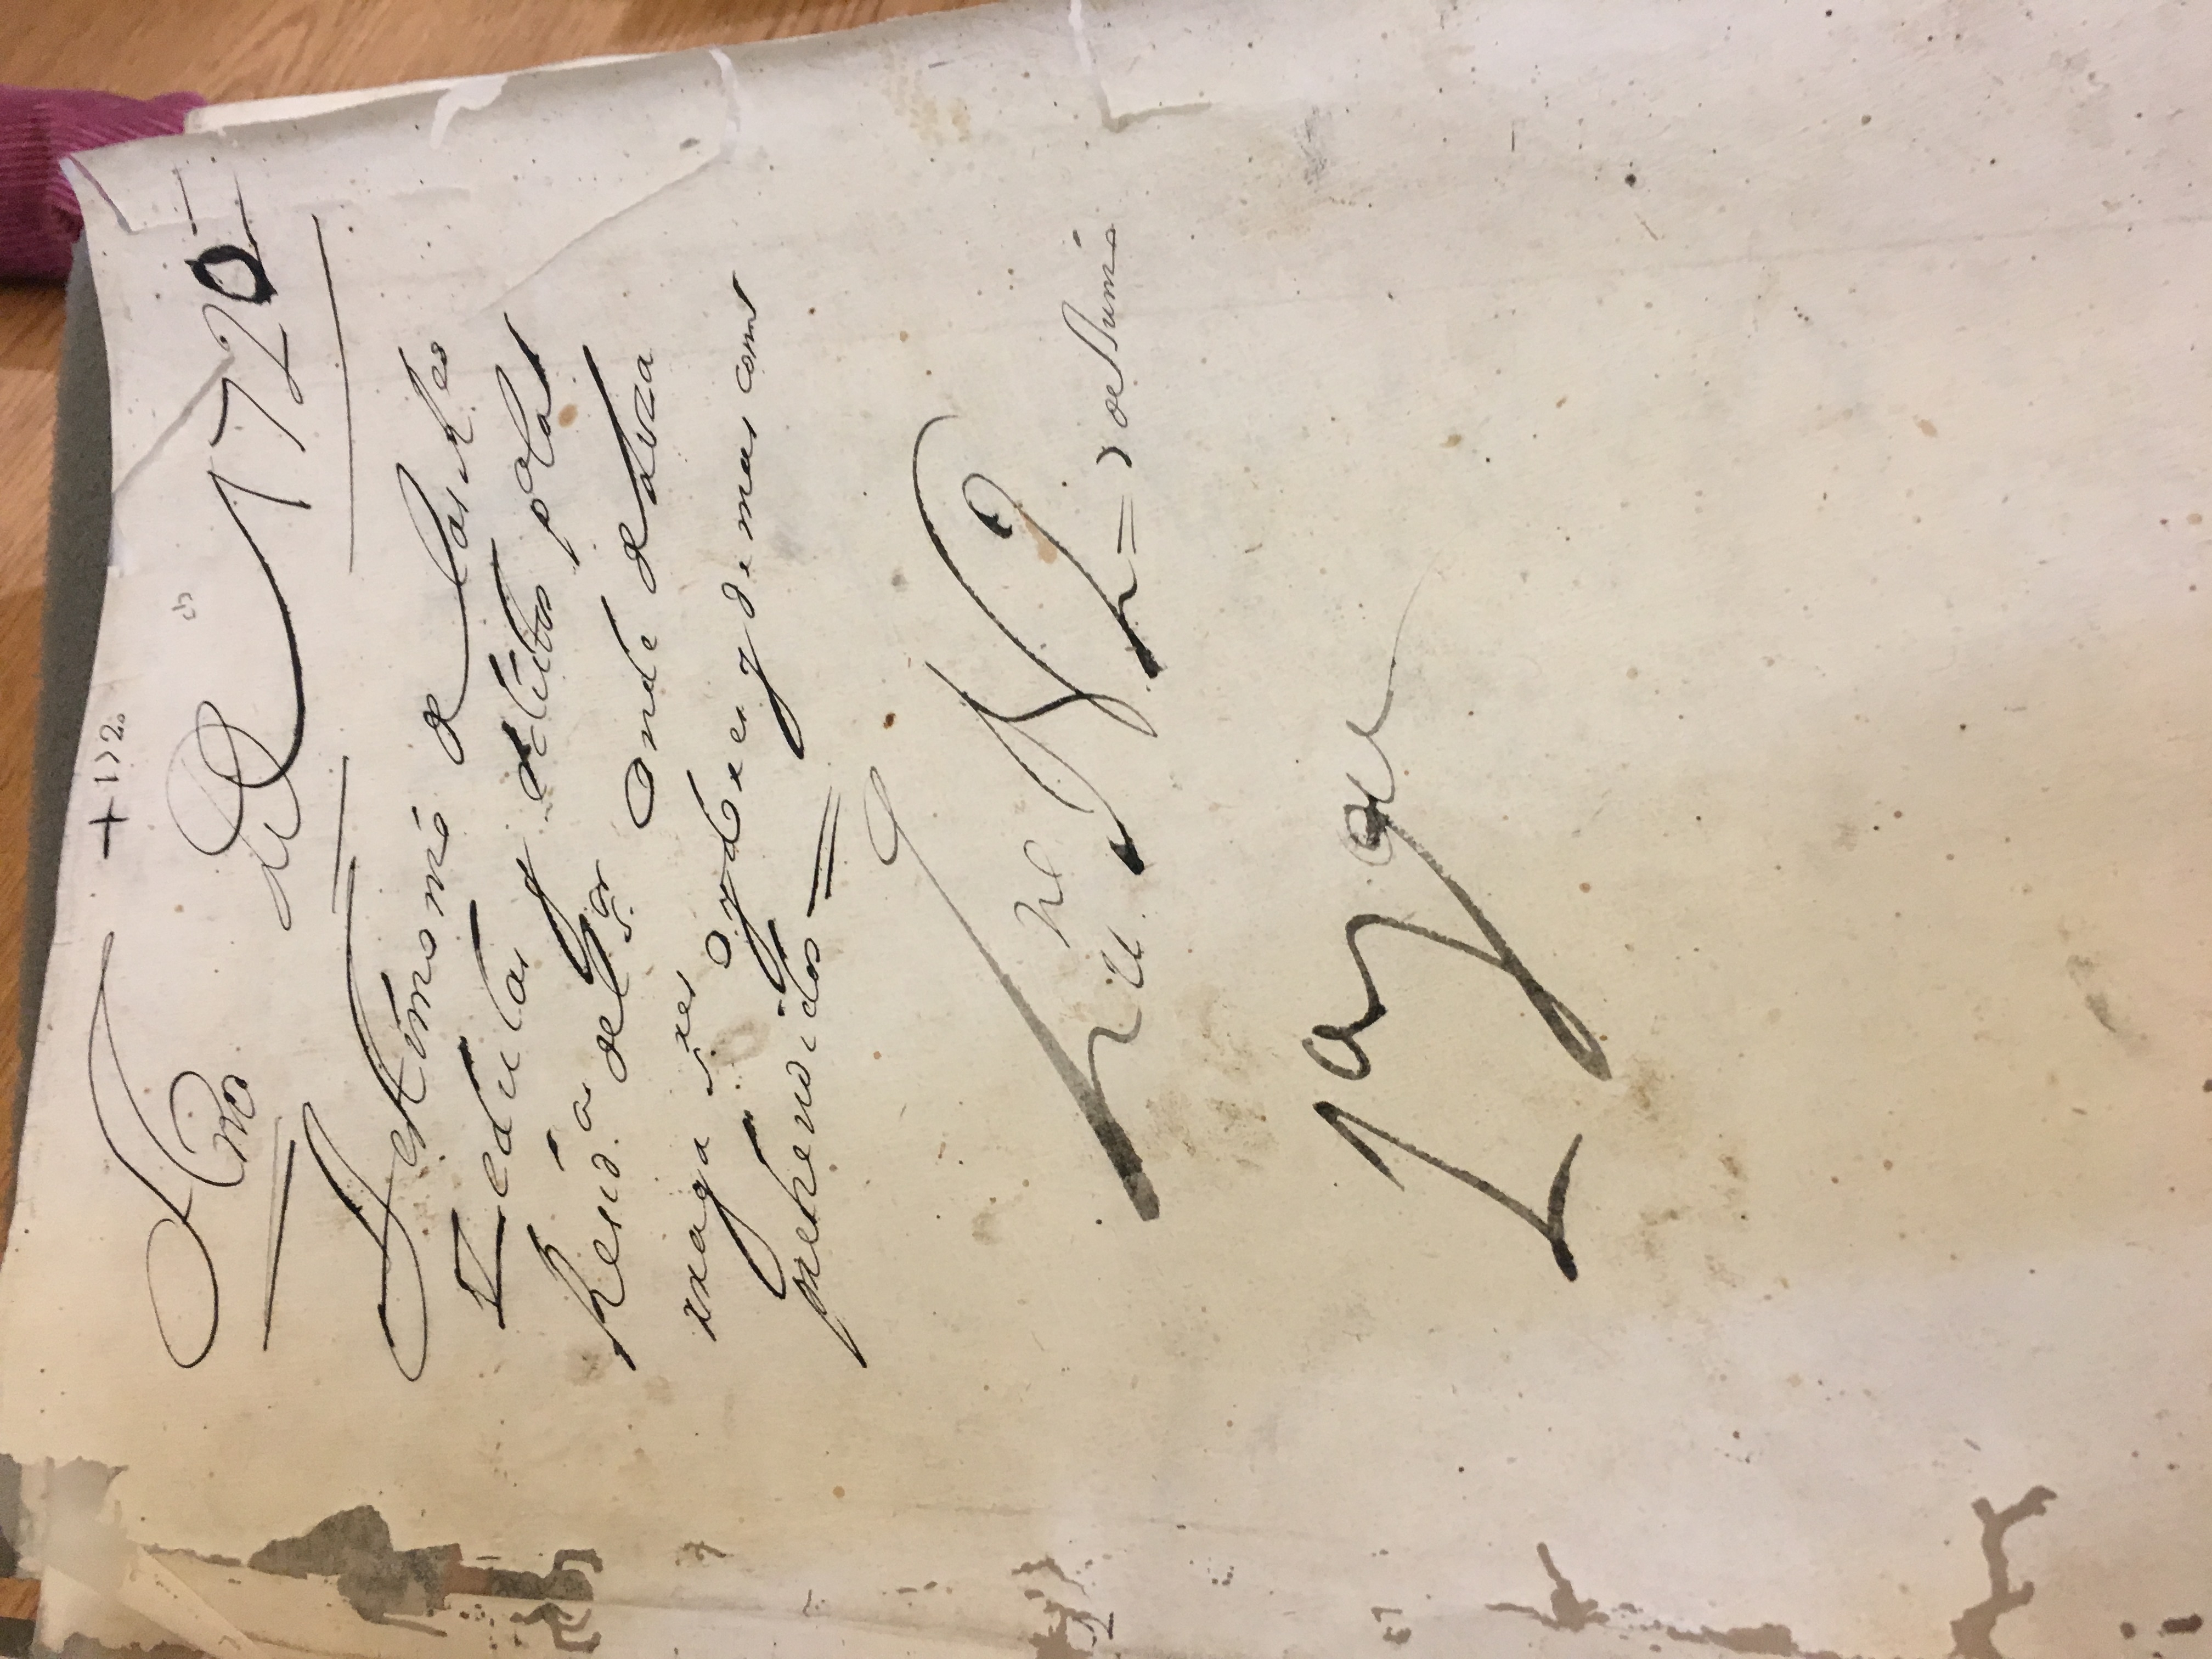 + 1720
Año del 1720
Testimonio de las R.es
Zedulas y edictos pa las
Resid.as del s.or Conde de Liza
rraga s.res oydores y demas com
prehendidos =
Qu.no N 2 =